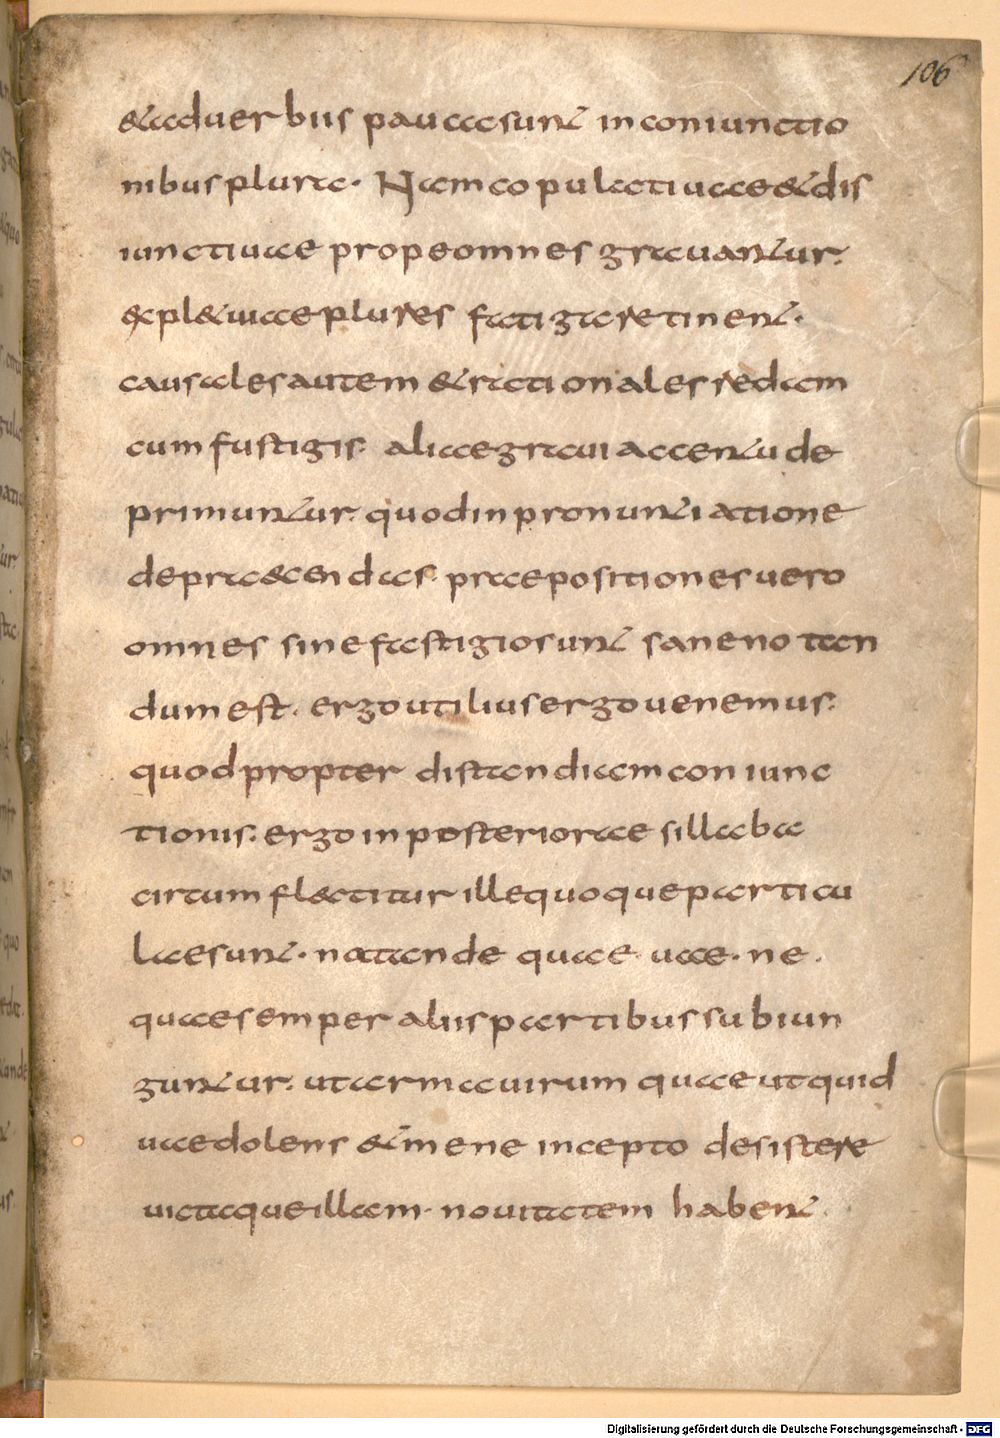 106
&aduerbiis paucasunt inconiunctio
nibusplura. Namcopulatiuae&dis
iunctiuae propeomnes grauantur.
&cpl&iuaeplures fatigaretinent.
causalesautem &rationales redam
cumfustigis. aliaegrauiaccentu de
primuntur. quodinpronuntiatione
deprae&cendas. praepositionesuero
omnes sinefastigiosunt sanenotan
dumest. ergoutiliusergouenemus.
quodpropter distandiamconiunc
tionis. ergoinposteriorae sillaba
circumfl&ctitur illequoqueparticu
laesunt. nattande quae. uae. ne.
quaesemper aliispartibussubiun
guntur. utarmauirumquaeutquid
uaedolens &mene incepto desistere
uictaqueillam. nouitatem habent.
Digitalisierung gefördert durch die Deutsche Forschungsgemeinschaft - DFG